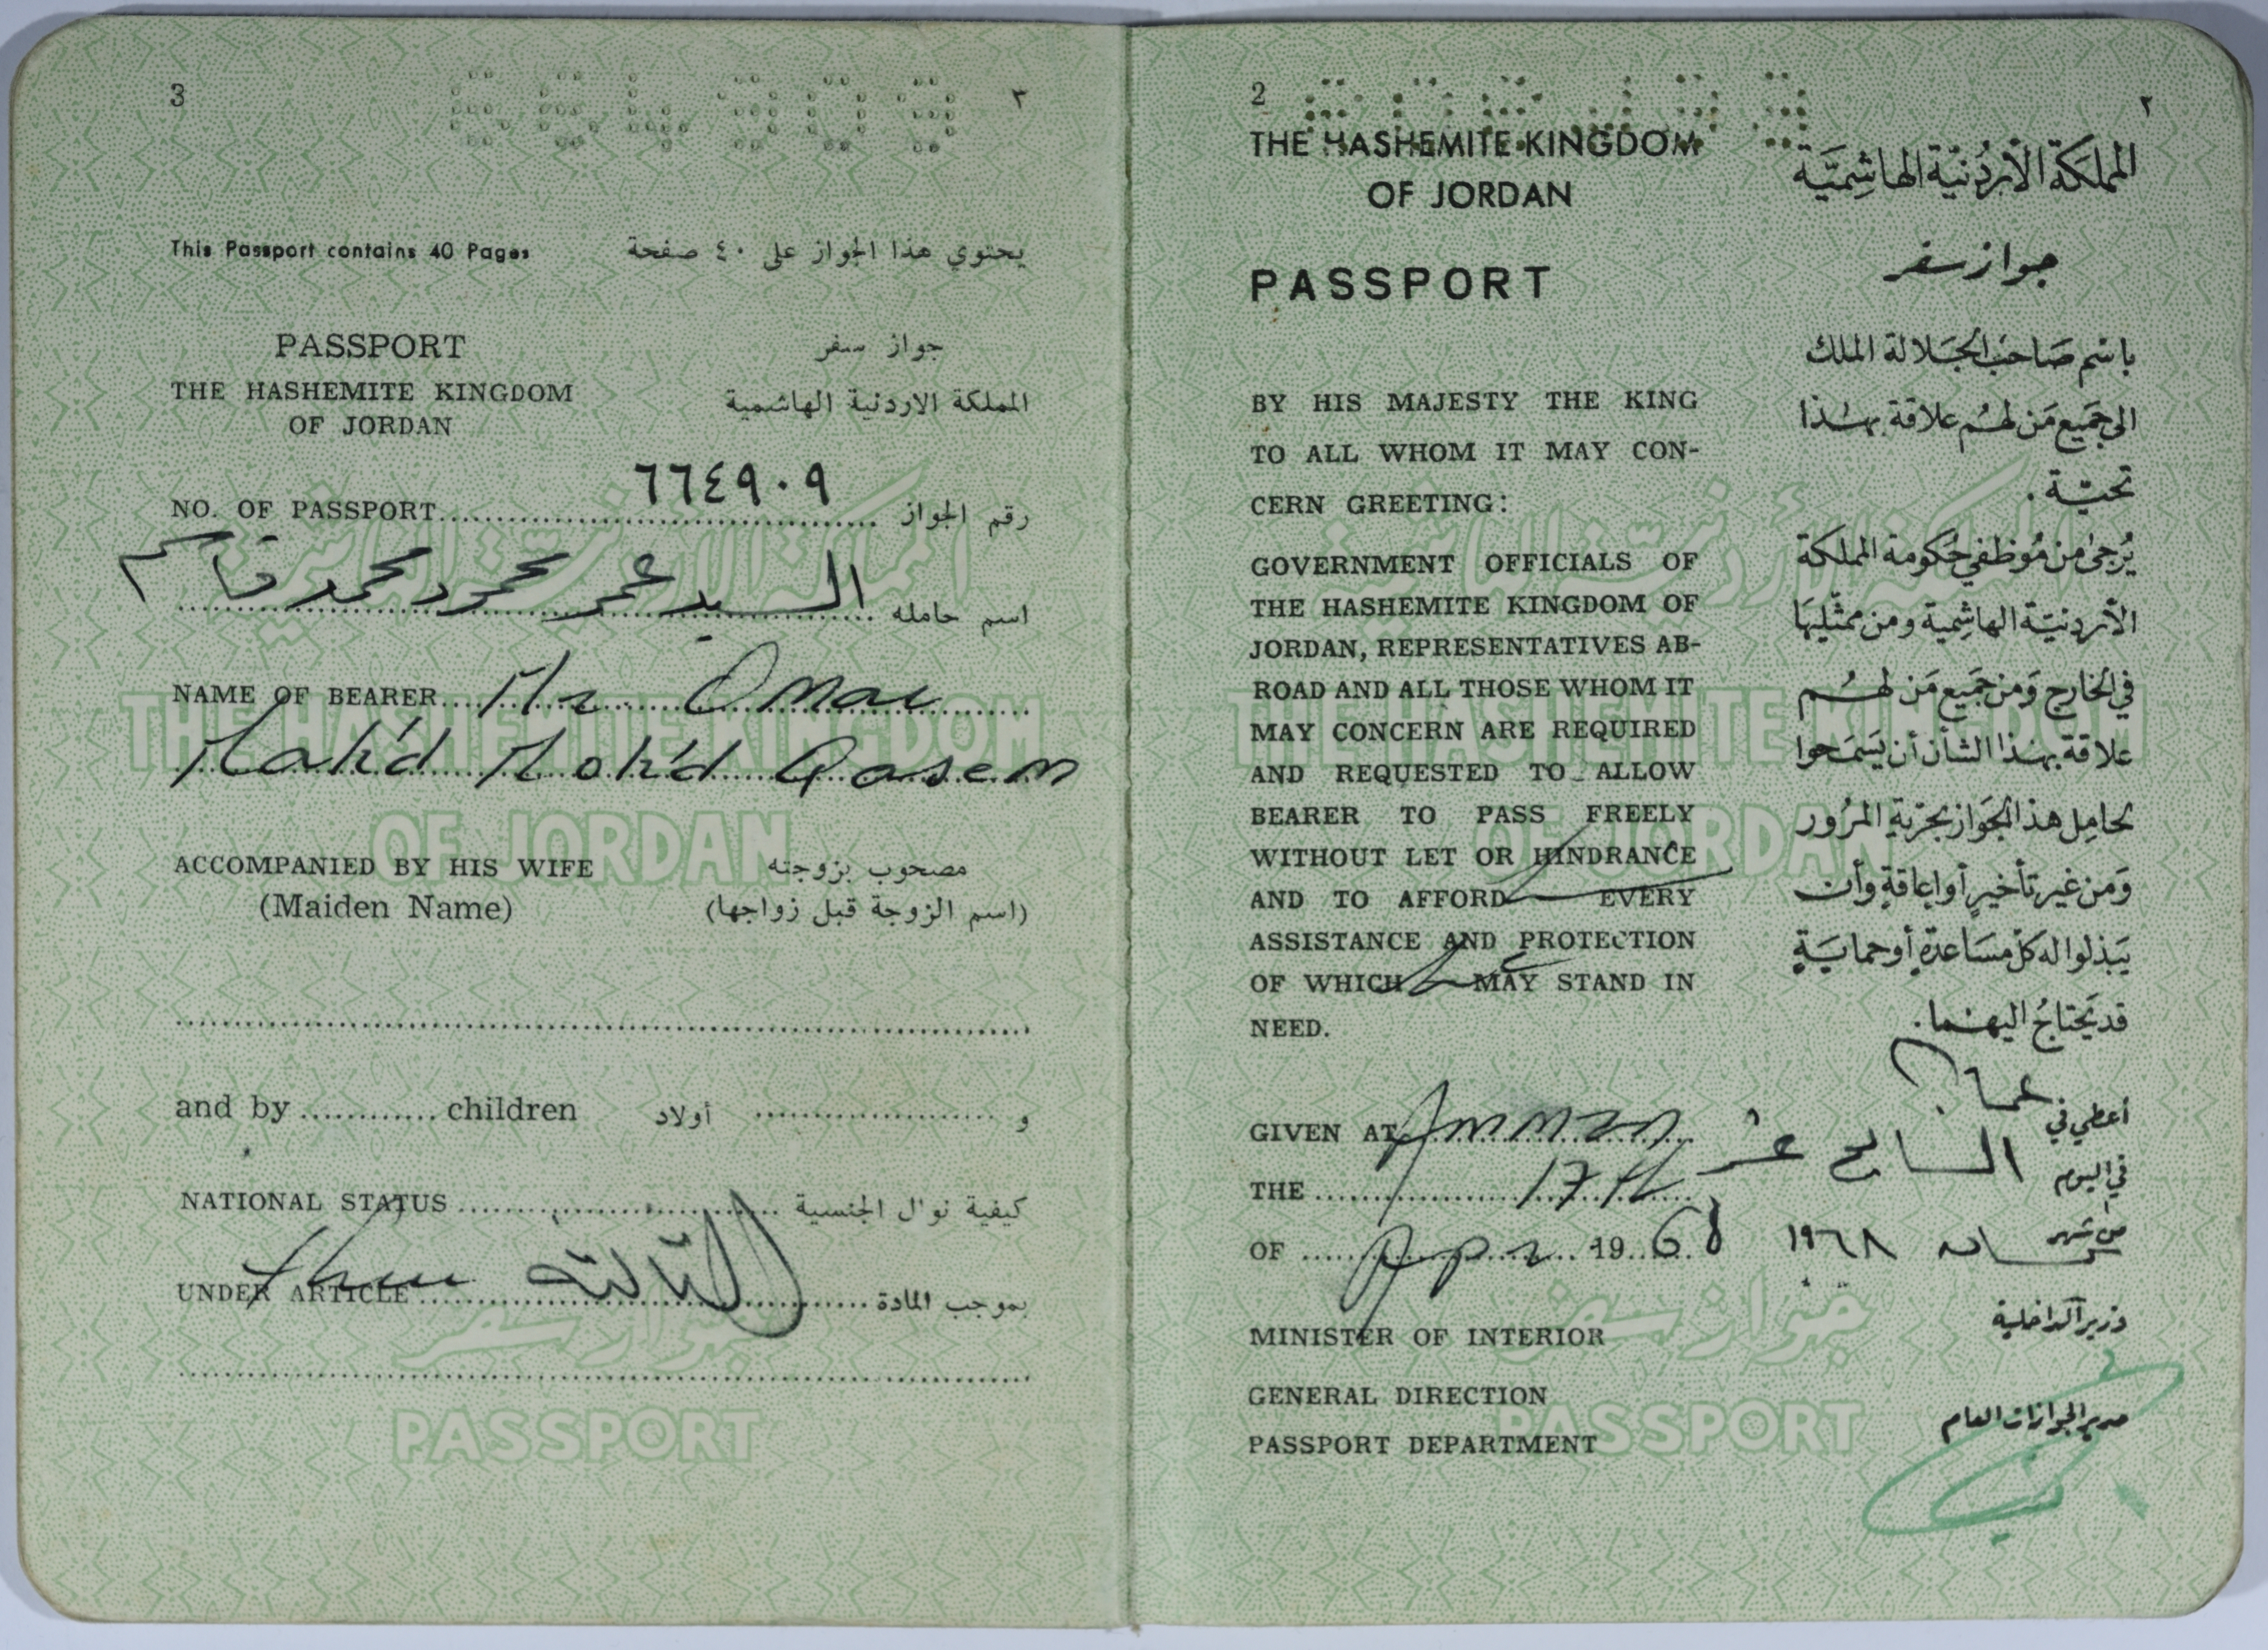 2 ٢
THE HASHEMITE KINGDOM
OF JORDAN
المملكة الأردنية الهاشمية
PASSPORT
جواز سفر
BY HIS MAJESTY THE KING
TO ALL WHOM IT MAY CON-
CERN GREETING:
GOVERNMENT OFFICIALS OF
THE HASHEMITE KINGDOM OF
JORDAN, REPRESENTATIVES AB-
ROAD AND ALL THOSE WHOM IT
MAY CONCERN ARE REQUIRED
AND REQUESTED TO ALLOW
BEARER TO PASS FREELY
WITHOUT LET OR HINDRANCE
AND TO AFFORD EVERY
ASSISTANCE AND PROTECTION
OF WHICH MAY STAND IN
NEED.
باسم صاحب الجلالة الملك
الى جميع من لهم علاقة بهذا
تحية .
يُرجى من موظفي حكومة المملكة
الأردنية الهاشمية ومن ممثليها
في الخارج ومن جميع من لهم
علاقة بهذا الشأن أن يسمحوا
لحامل هذا الجواز بحرية المرور
ومن غير تأخير أو إعاقة وأن
يبذلوا له كل مساعدة أو حماية
قد يحتاج اليهما .
GIVEN AT Amman
أعطي في عمان
THE 17th
في اليوم السابع عشر
OF Apr 1968
من شهر نيسان ١٩٦٨
MINISTER OF INTERIOR
وزير الداخلية
GENERAL DIRECTION
PASSPORT DEPARTMENT
مدير الجوازات العام
3 ٣
This Passport contains 40 Pages
يحتوي هذا الجواز على ٤٠ صفحة
PASSPORT
جواز سفر
THE HASHEMITE KINGDOM
OF JORDAN
المملكة الاردنية الهاشمية
NO. OF PASSPORT ٦٦٤٩٠٩ رقم الجواز
السيد عمر محمود محمد قاسم اسم حامله
NAME OF BEARER Mr Omar
Mah'd Moh'd Qasem
ACCOMPANIED BY HIS WIFE مصحوب بزوجته
(Maiden Name) (اسم الزوجة قبل زواجها)
and by children أولاد و
NATIONAL STATUS كيفية نوال الجنسية
UNDER ARTICLE الثالثة بموجب المادة
THE HASHEMITE KINGDOM
OF JORDAN
جواز سفر
PASSPORT